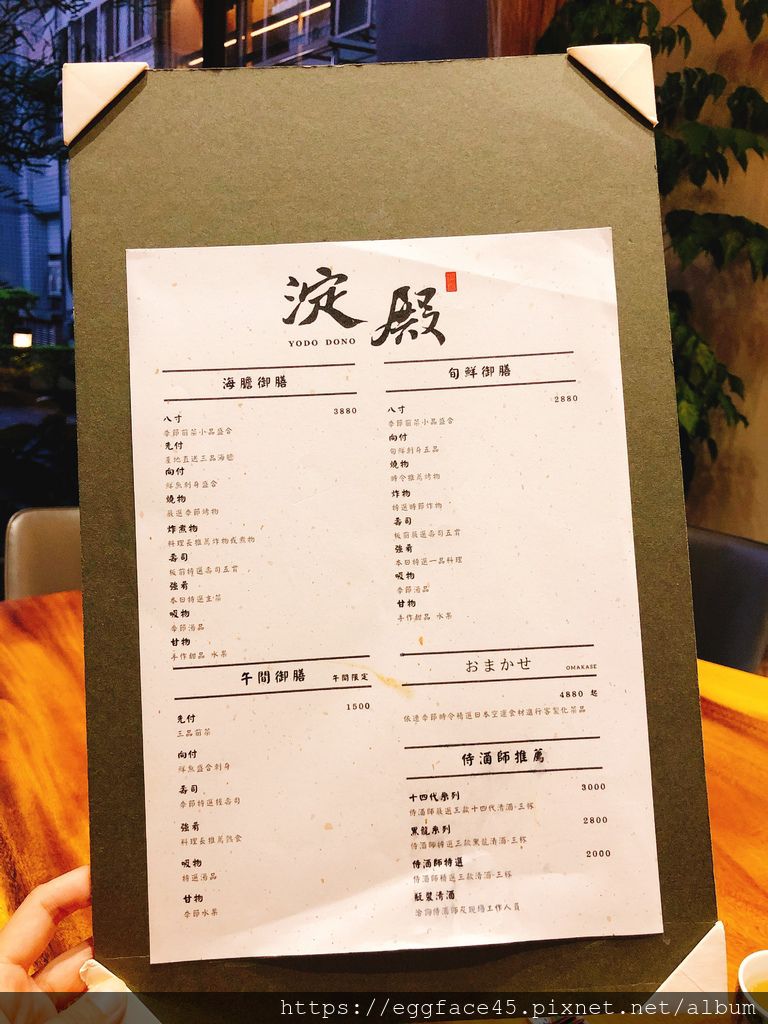 淀殿
YODO DONO
海膽御膳
3880
八寸
季節前菜小品盛合
先付
產地直送三品海膽
向付
鮮魚刺身盛合
燒物
嚴選季節烤物
炸煮物
料理長推薦炸物或煮物
壽司
板前特選壽司五貫
強肴
本日特選主菜
吸物
季節湯品
甘物
手作甜品 水果
旬鮮御膳
2880
八寸
季節前菜小品盛合
向付
旬鮮刺身五品
燒物
時令推薦烤物
炸物
特選時節炸物
壽司
板前嚴選壽司五貫
強肴
本日特選一品料理
吸物
季節湯品
甘物
手作甜品 水果
午間御膳 午間限定
1500
先付
三品前菜
向付
鮮魚盛合刺身
壽司
季節特選握壽司
強肴
料理長推薦熟食
吸物
特選湯品
甘物
季節水果
おまかせ OMAKASE
4880 起
依造季節時令精選日本空運食材進行客製化菜品
侍酒師推薦
十四代系列 3000
侍酒師嚴選三款十四代清酒·三杯
黑龍系列 2800
侍酒師特選三款黑龍清酒·三杯
侍酒師特選 2000
侍酒師精選三款清酒·三杯
瓶裝清酒
洽詢侍酒師及現場工作人員
https://eggface45.pixnet.net/album